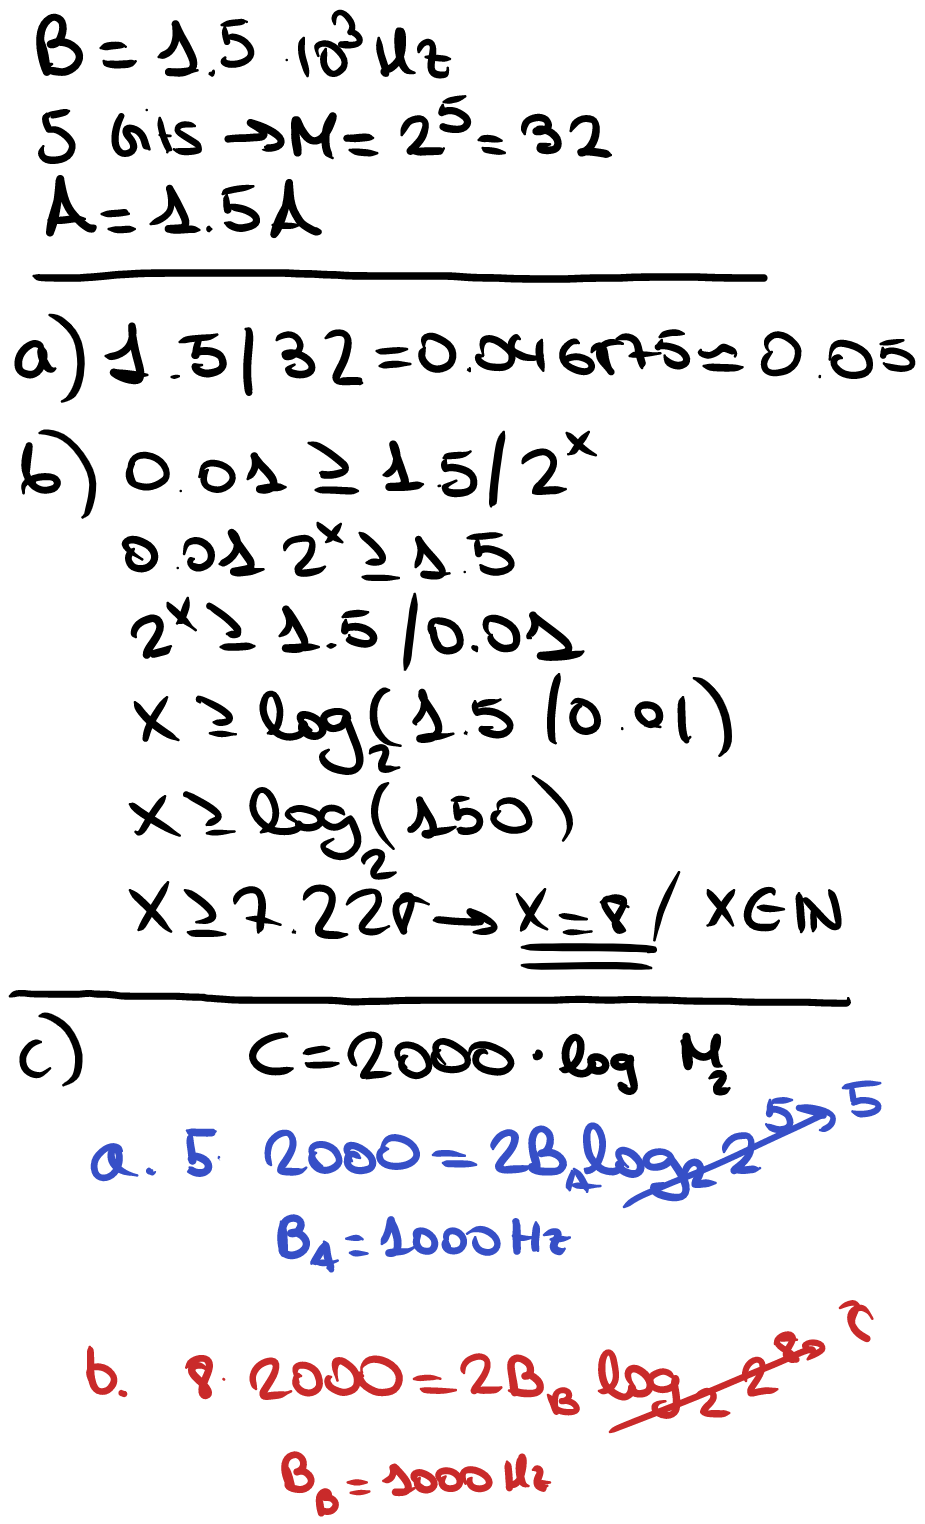 B = 1.5 · 10³ Hz
5 bits → M = 2⁵ = 32
A = 1.5A
a) 1.5/32 = 0.046875 ≃ 0.05
b) 0.01 ≥ 1.5/2ˣ
0.01 2ˣ ≥ 1.5
2ˣ ≥ 1.5/0.01
x ≥ log₂(1.5/0.01)
x ≥ log₂(150)
x ≥ 7.228 → x = 8 / x ∈ ℕ
c) C = 2000 · log M₂
a. 5 · 2000 = 2B_A log₂ 2⁵ → 5
B_A = 1000 Hz
b. 8 · 2000 = 2B_B log₂ 2⁸ → 8
B_B = 1000 Hz